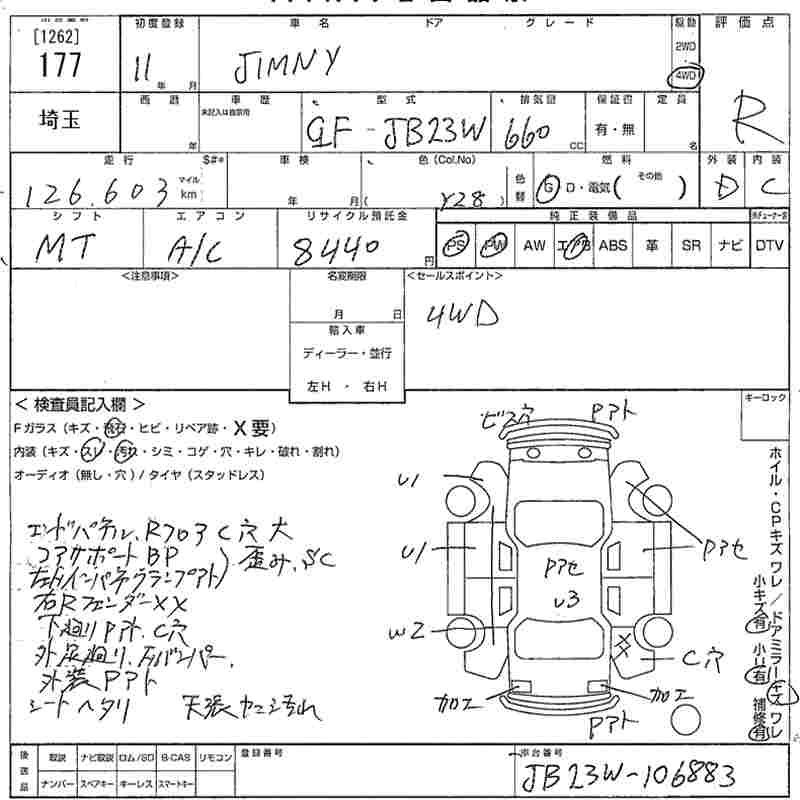 [1262] 初度登録 車名 ドア グレード 駆動 評価点
177 11 年 月 JIMNY 2WD 4WD
埼玉 西暦 車歴 型式 排気量 保証書 定員 R
年 未記入は自家用 GF-JB23W 660 CC 有・無 名
走行 $#* 車検 色(Col.No) 燃料 外装 内装
126.603 マイル km 年 月 ( Y28 ) 色替 G D・電気( その他 ) D C
シフト エアコン リサイクル預託金 純正装備品
MT A/C 8440 円 PS PW AW エアB ABS 革 SR ナビ DTV
<注意事項> 名変期限 <セールスポイント>
月 日 4WD
輸入車
ディーラー・並行
左H ・ 右H
< 検査員記入欄 > キーロック
Fガラス(キズ・飛石・ヒビ・リペア跡・X要)
内装(キズ・スレ・汚れ・シミ・コゲ・穴・キレ・破れ・割れ)
オーディオ(無し・穴)/タイヤ(スタッドレス)
エンドパネル、Rフロア C穴 大
コアサポートBP
歪み、SC
右RフェンダーXX
下廻りPアト、C穴
外装Pアト
シートヘタリ 天張ヤニ汚れ
ビス穴 Pアト
U1
U1 Pアセ
Pアセ
U3
W2 XX C穴
加工 加工
Pアト
ホイル・CPキズ ワレ/ドアミラーキズ ワレ
小キズ有 小U有 補修有
後送品 取説 ナビ取説 ロム/SD B-CAS リモコン 登録番号 車台番号
ナンバー スペアキー キーレス スマートキー JB23W-106883